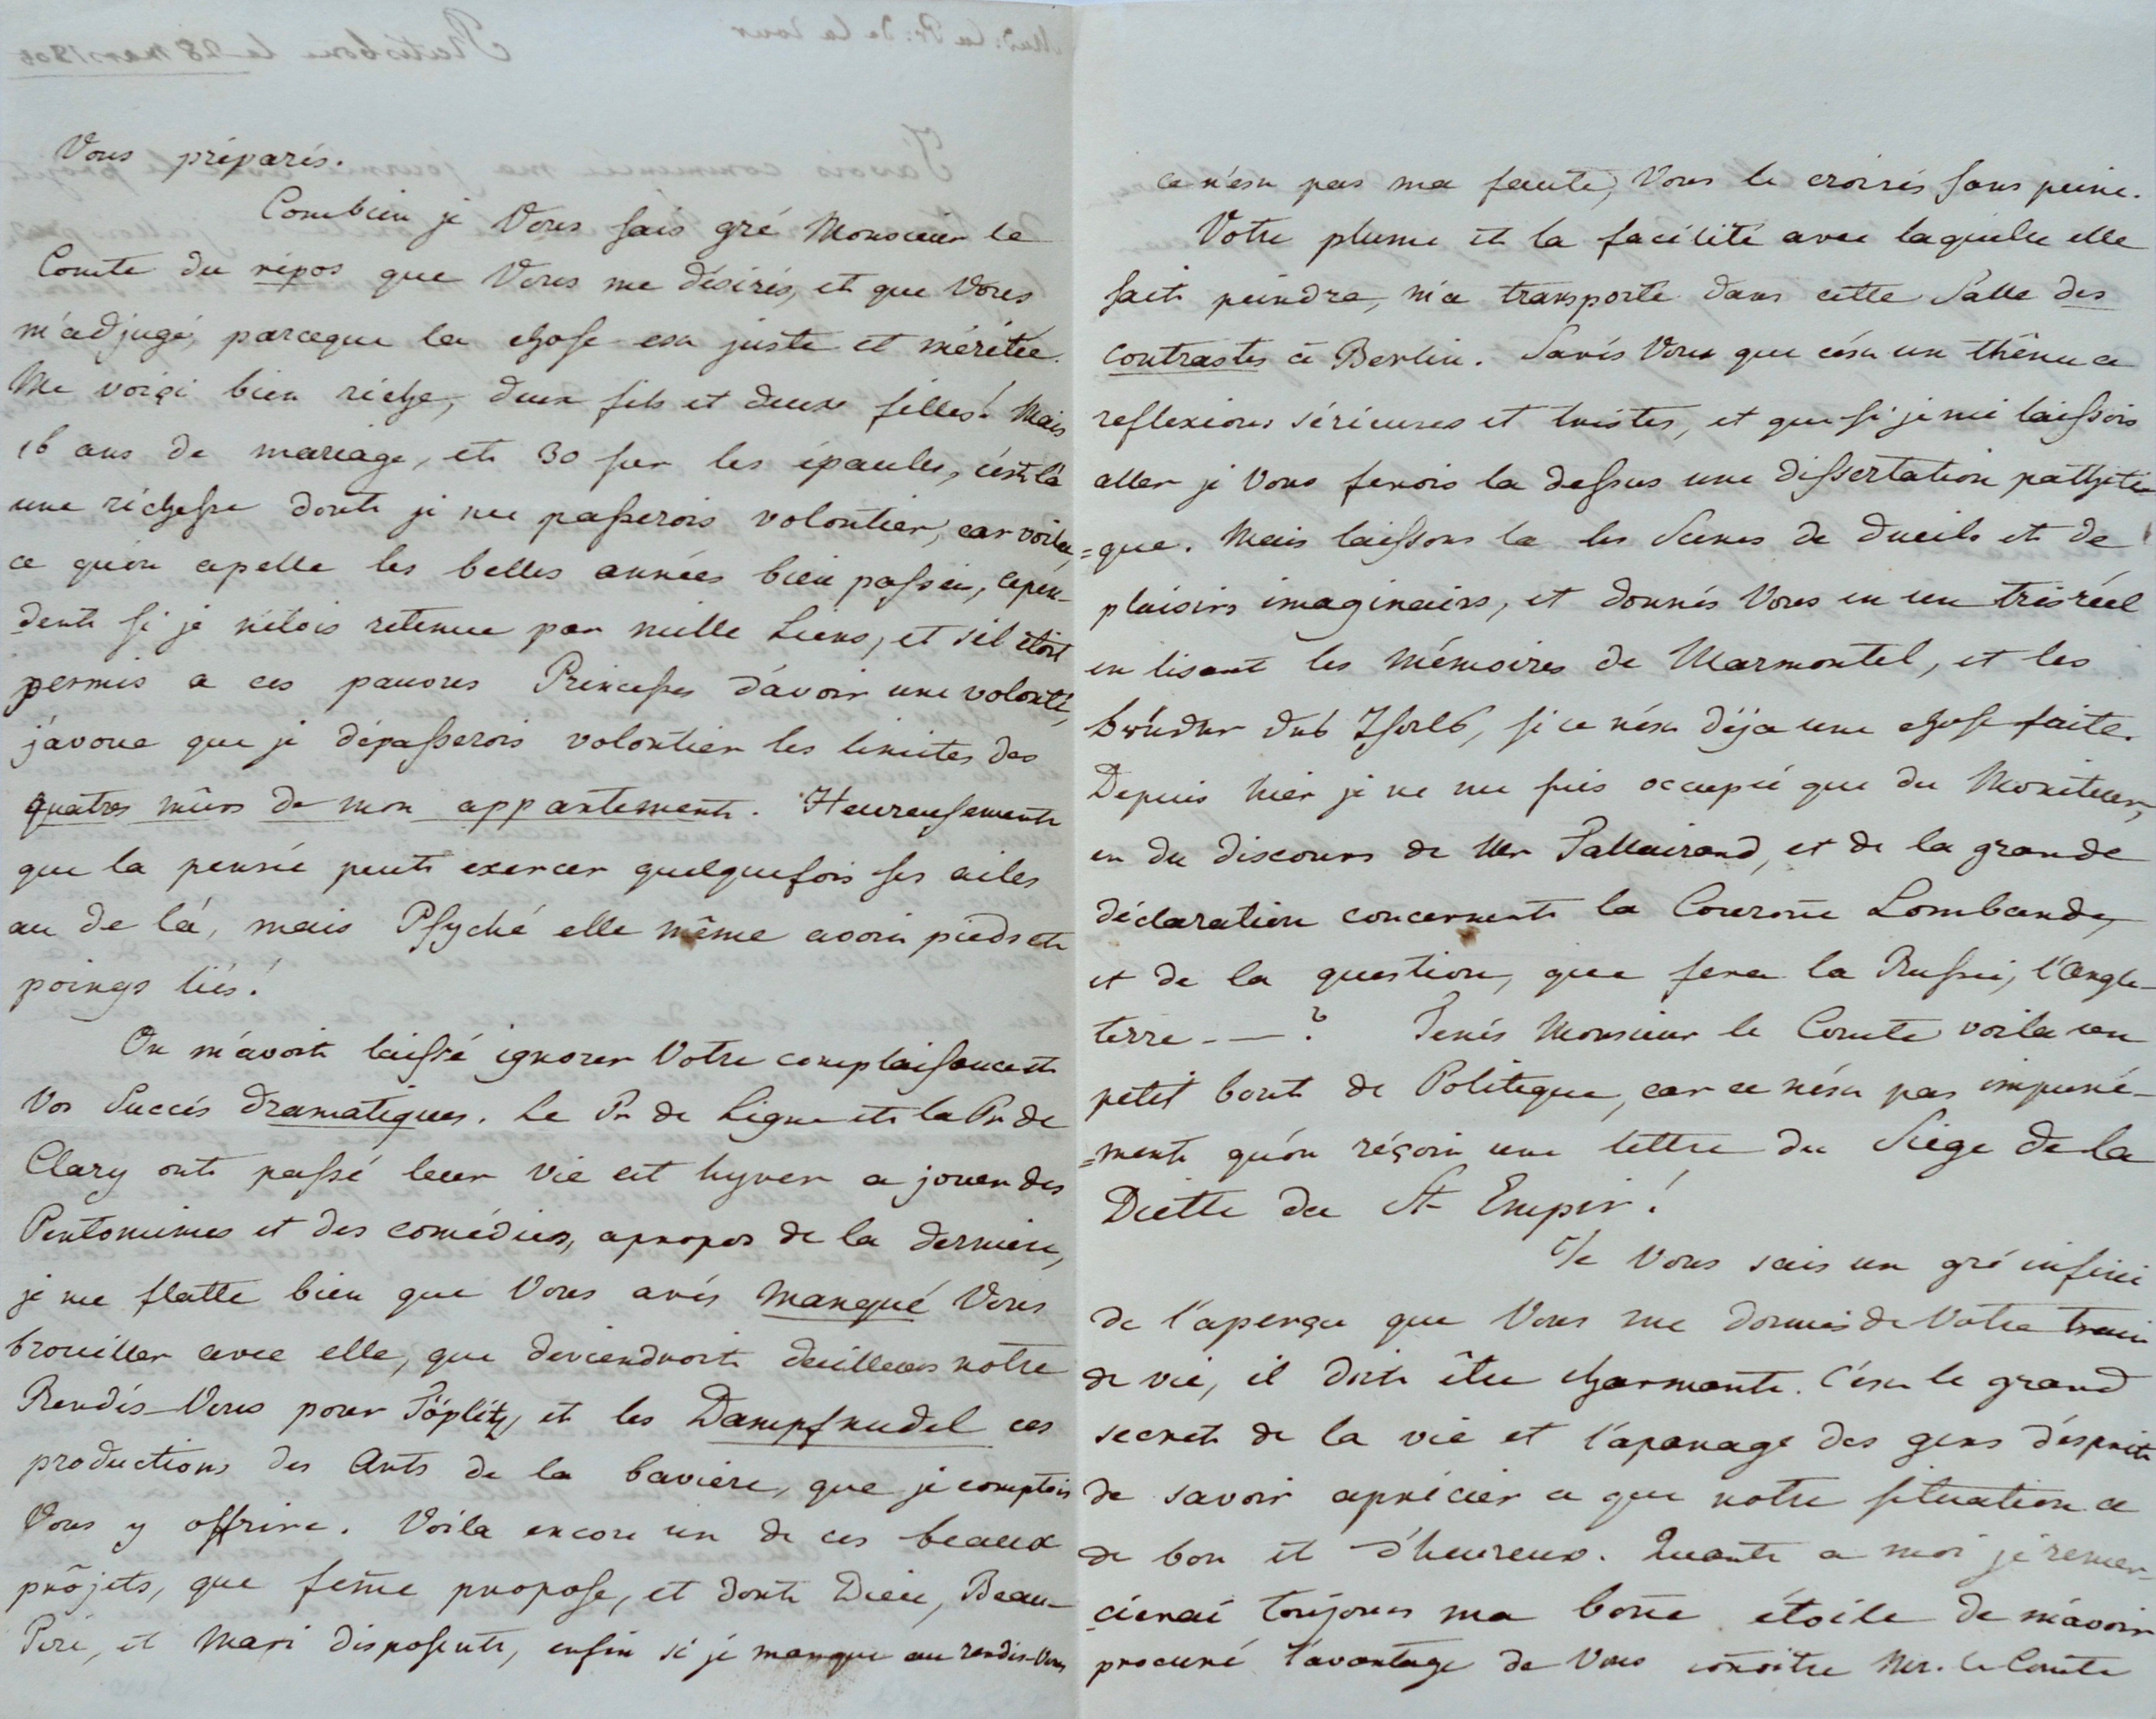 Vous préparés.
Combien je Vous sais gré Monsieur le
Comte du répos que Vous me désirés, et que Vous
m'adjugé, parceque la chose est juste et méritée.
Me voiçi bien riche, deux fils et deux filles! Mais
16 ans de mariage, et 30 sur les épaules, c'est là
une richesse dont je me passerois volontier, car voila,
ce qu'on apelle les belles années bien passée, cepen-
dent si je n'étois retenue par mille Liens, et s'il étoit
permis a ces pauvres Princesses d'avoir une volonté,
j'avoue que je dépasserois volontier les limites des
quatres mûrs de mon appartement. Heureusement
que la pensée peut exercer quelquefois ses ailes
au de là, mais Psyché elle même avoir pieds et
poings liés!
On m'avoit laissé ignorer Votre complaisance et
Vos Succés dramatiques. Le Pr de Ligne et la Pr de
Clary ont passé leur vie cet hyver a jouer des
Pantomimes et des comédies, apropos de la derniere,
je me flatte bien que Vous avés manqué Vous
brouiller avec elle, que deviendroit d'ailleurs notre
Rendés-Vous pour Töplitz, et les Dampfnudel ces
productions des Arts de la baviere, que je comptois
Vous y offrire. Voila encore un de ces beaux
projets, que fem̄e propose, et dont Dieu, Beau-
Pere, et Mari disposent, enfin si je manque au rendés-Vous
ce n'est pas ma faute, Vous le croirés sans peine.
Votre plume et la facilité avec laquelle elle
sait peindre, m'a transporté dans cette Salle des
contrastes à Berlin. Savés Vous que c'est un thême a
reflexions sérieuses et tristes, et que si je me laissois
aller je Vous ferois la dessus une dissertation pathéti-
=que. Mais laissons la les Scenes de dueils et de
plaisirs imaginaires, et donnés Vous en un très réel
en lisant les Mémoires de Marmontel, et les
brüder des Isals, si ce n'est déja une chose faite.
Depuis hier je ne me suis occupée que du Moniteur,
en du discours de Mr Talleirand, et de la grande
déclaration concernent la Couron̄e Lombarde,
et de la question, que fera la Russie, l'Angle-
terre - — ? Tenés Monsieur le Comte voila un
petit bout de Politique, car ce n'est pas impuné-
=ment qu'on réçoit une lettre du Siége de la
Diette du St Empir!
Je Vous sais un gré infini
de l'aperçu que Vous me donnés de Votre train
de vie, il doit être charmante. C'est le grand
secret de la vie et l'apanage des gens d'ésprit
de savoir aprécier ce que notre situation a
de bon et d'heureux. Quant a moi je remer-
çierai toujours ma bon̄e étoile de m'avoir
procuré l'avantage de Vous con̄oitre Mr. le Comte